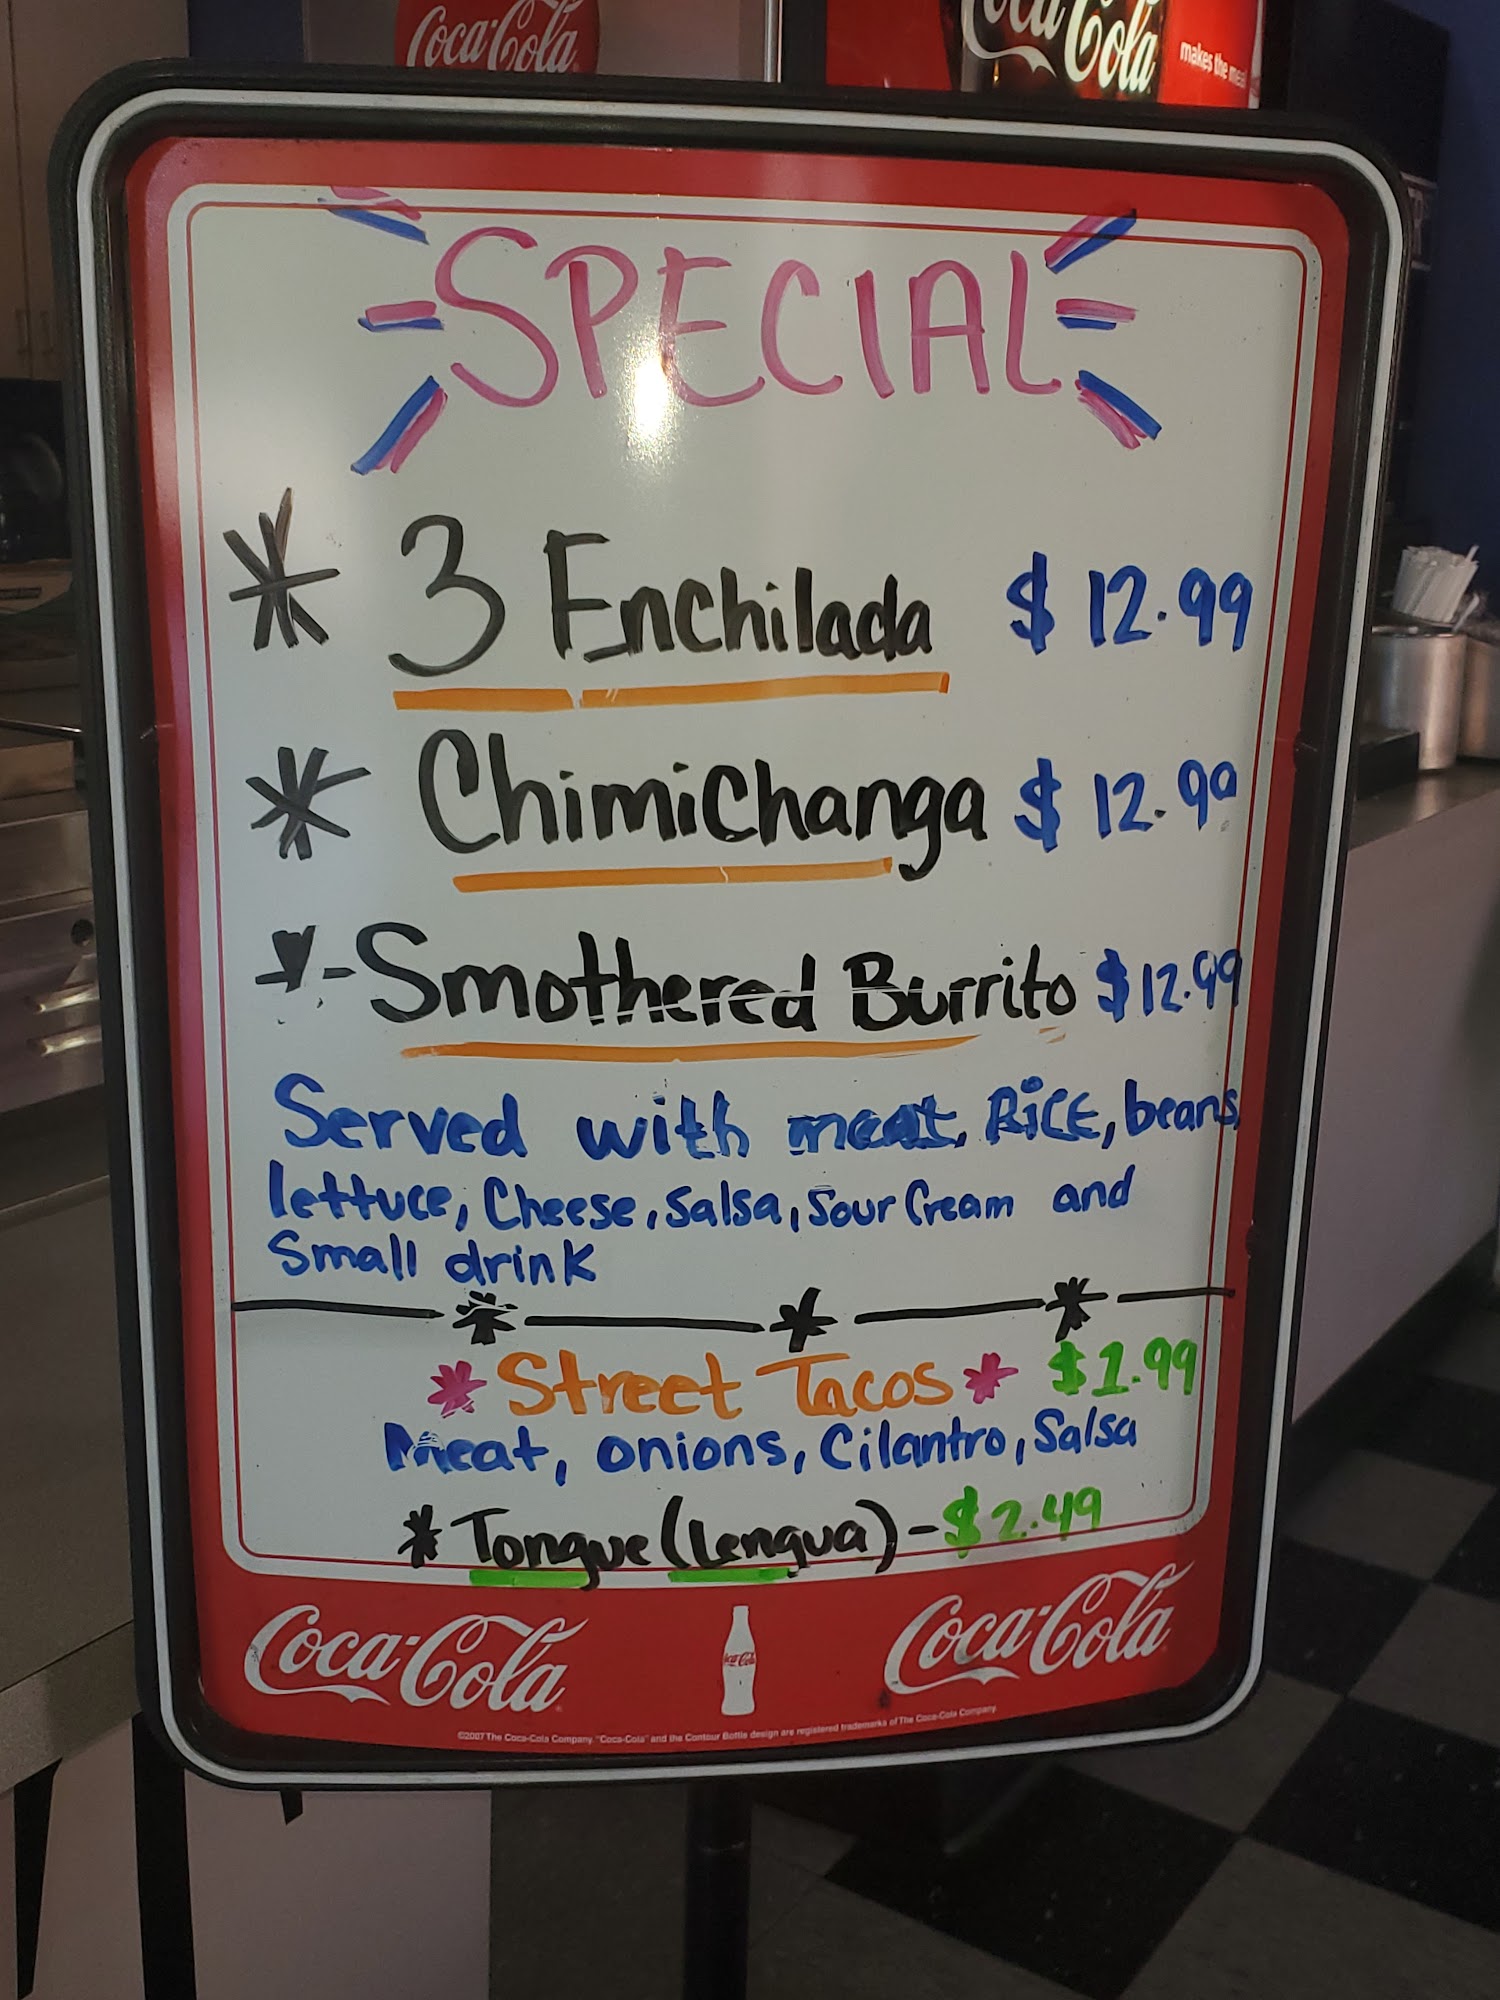 Coca-Cola
Coca-Cola
makes the
SPECIAL
* 3 Enchilada $12.99
* Chimichanga $12.99
*-Smothered Burrito $12.99
Served with meat, RiCE, beans,
lettuce, Cheese, Salsa, Sour Cream and
Small drink
* Street Tacos * $1.99
Meat, onions, Cilantro, Salsa
* Tongue (Lengua) - $2.49
Coca-Cola
Coca-Cola
Coca-Cola
©2007 The Coca-Cola Company. "Coca-Cola" and the Contour Bottle design are registered trademarks of The Coca-Cola Company.